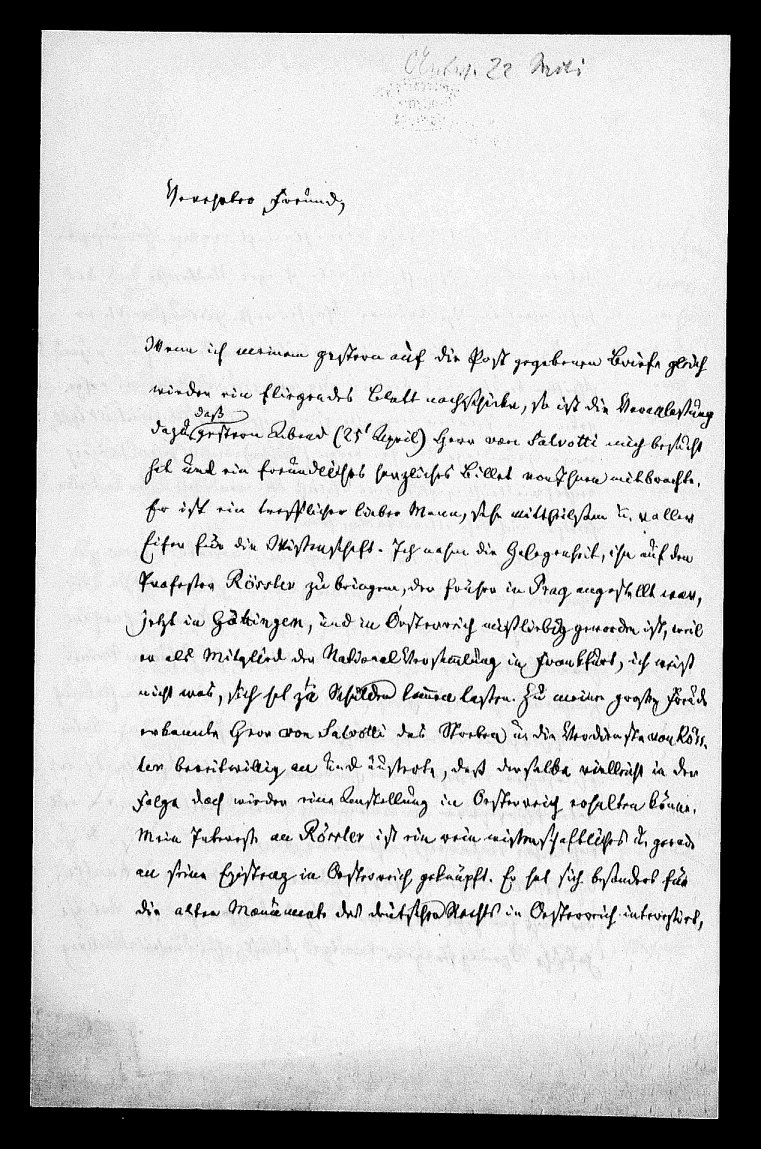 22 Mai
Verehrter Freund,
Wenn ich meinem gestern auf die Post gegebenen Briefe gleich
wieder ein fliegendes Blatt nachschicke, so ist die Veranlassung
daß
dazu gestern Abend (25t April) Herr von Salvotti mich besucht
hat und ein freundliches herzliches Billet von Ihnen mitbrachte.
Er ist ein trefflicher lieber Mann, sehr mittheilsam u. voller
Eifer für die Wissenschaft. Ich nahm die Gelegenheit, ihn auf den
Professor Rössler zu bringen, der früher in Prag angestellt war,
jetzt in Göttingen, und in Oesterreich mißliebig geworden ist, weil
er als Mitglied der National Versammlung in Frankfurt, ich weiß
nicht was, sich hat zu Schulden kommen lassen. Zu meiner großen Freude
erkannte Herr von Salvotti das Streben u. die Verdienste von Röss-
ler bereitwillig an und äusserte, daß derselbe vielleicht in der
Folge doch wieder eine Anstellung in Oesterreich erhalten könne.
Mein Interesse an Rössler ist ein rein wissenschaftliches u. gerade
an seine Existenz in Oesterreich geknüpft. Er hat sich besonders für
die alten Monumente des deutschen Rechts in Oesterreich interessirt,